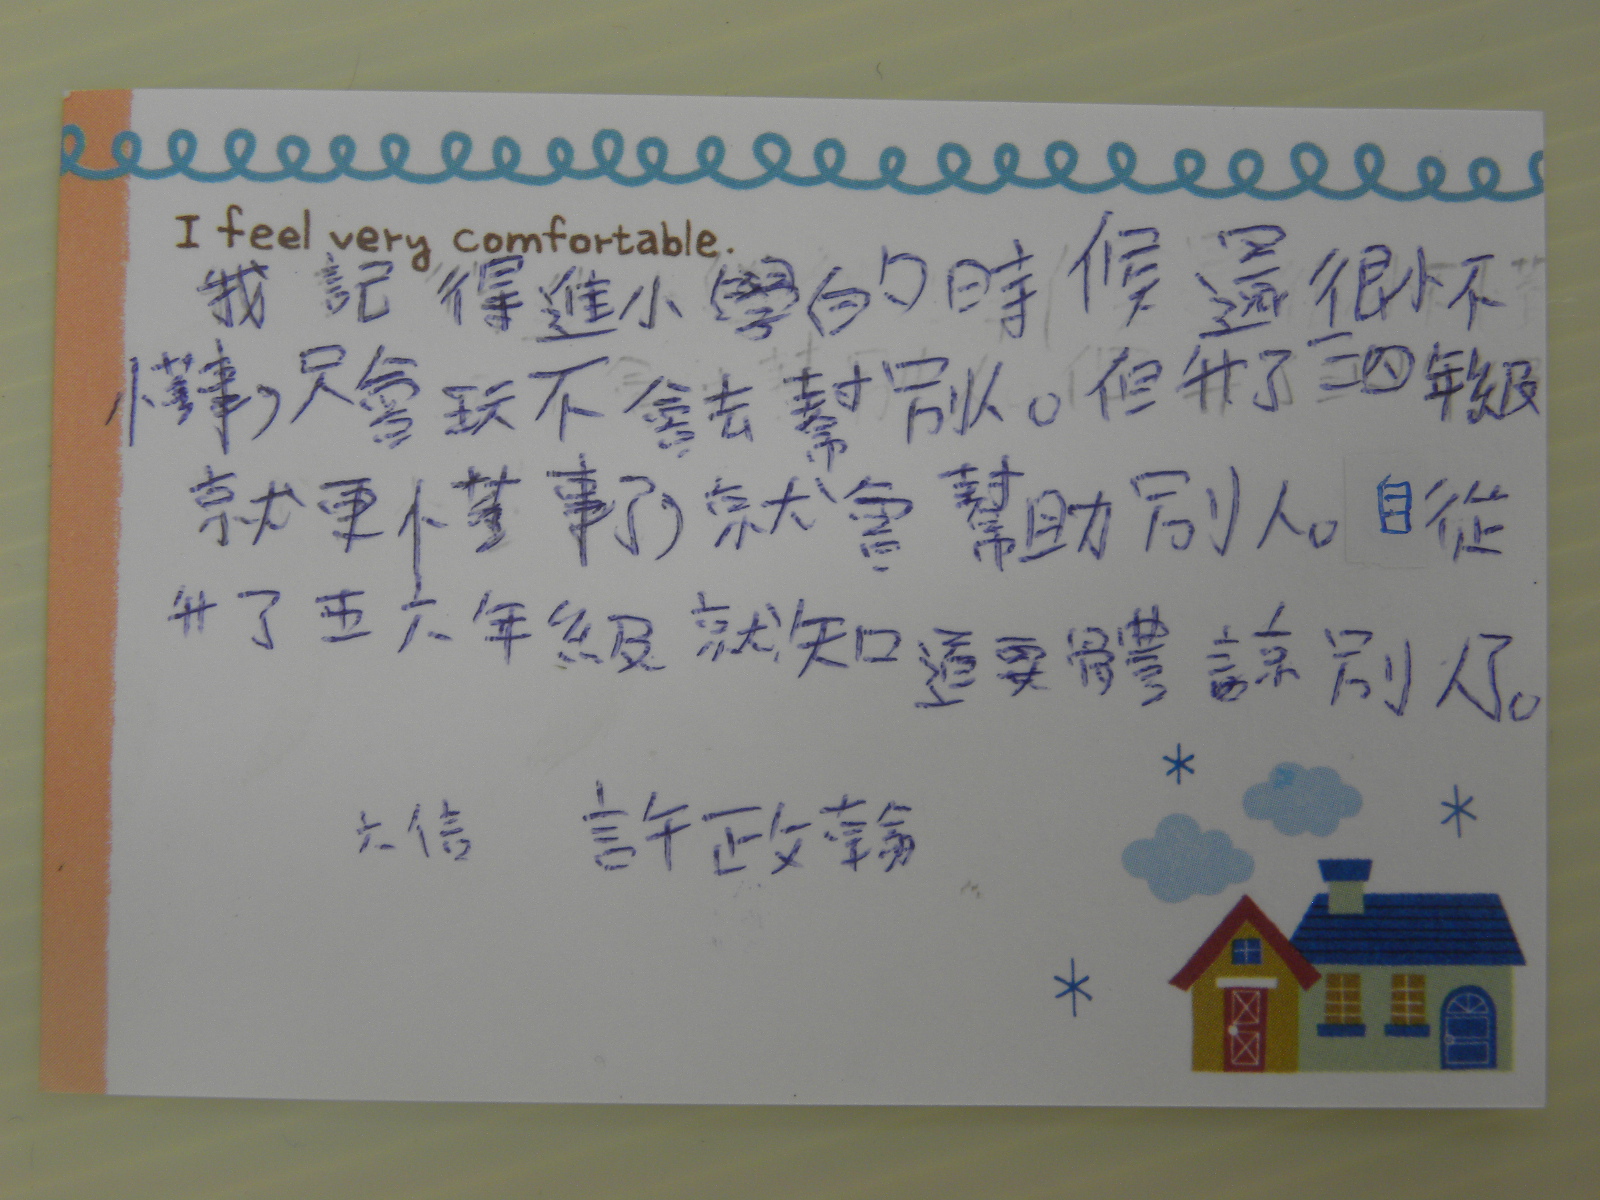 I feel very comfortable.
我記得進小學的時候還很小不
懂事,只會玩不會去幫別人。但升了三四年級
就更懂事了,就會幫助別人。自從
升了五六年級就知道要體諒別人了。
六信 許政翰